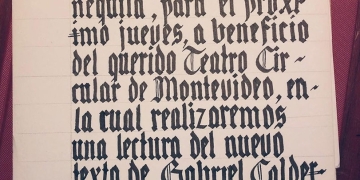 nequilla, para el próxi-
mo jueves, a beneficio
del querido Teatro Cir-
cular de Montevideo, en
la cual realizaremos
una lectura del nuevo
texto de Gabriel Calder-